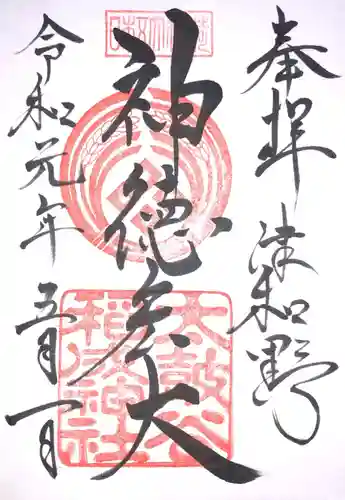 奉拝 津和野
神徳 大
太鼓谷
稲成神社
令和元年
五月一日